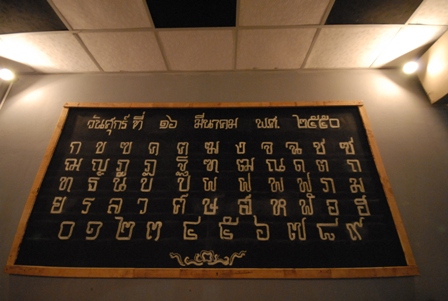 วันศุกร์ ที่ ๑๖ มีนาคม พศ. ๒๕๕๐
ก ข ฃ ค ฅ ฆ ง จ ฉ ช ซ
ฌ ญ ฎ ฏ ฐ ฑ ฒ ณ ด ต ถ
ท ธ น บ ป ผ ฝ พ ฟ ภ ม
ย ร ล ว ศ ษ ส ห ฬ อ ฮ
๐ ๑ ๒ ๓ ๔ ๕ ๖ ๗ ๘ ๙